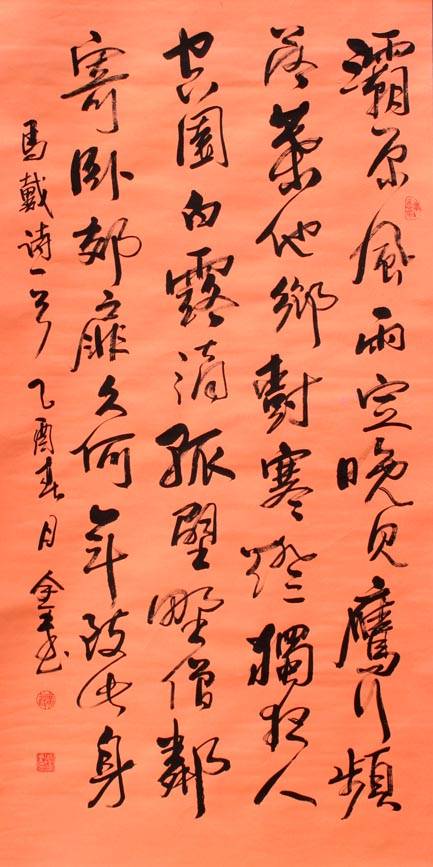 灞原風雨定晚見鷹行頻
落葉他鄉樹寒燈獨夜人
空園白露滴孤壁野僧鄰
寄卧郊扉久何年致此身
馬戴诗一首 乙酉春月